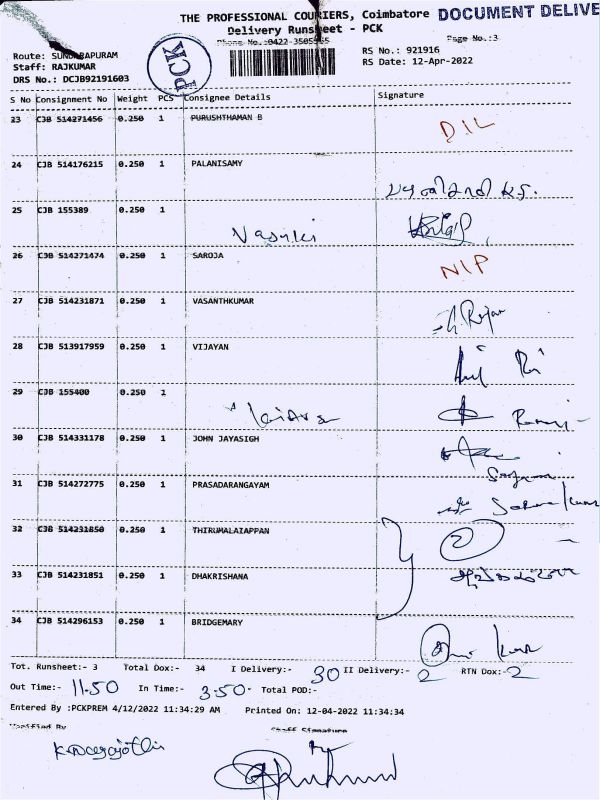 THE PROFESSIONAL COURIERS, Coimbatore DOCUMENT DELIVE
Delivery Runsheet - PCK
Phone No.:0422-3505555 Page No.:3
Route: SUNDARAPURAM
Staff: RAJKUMAR
DRS No.: DCJB92191603
PCK
RS No.: 921916
RS Date: 12-Apr-2022
S No Consignment No Weight PCS Consignee Details Signature
23 CJB 514271456 0.250 1 PURUSHTHAMAN B D.I.L
24 CJB 514176215 0.250 1 PALANISAMY
25 CJB 155389 0.250 1 Vasuki
26 CJB 514271474 0.250 1 SAROJA NIP
27 CJB 514231871 0.250 1 VASANTHKUMAR
28 CJB 513917959 0.250 1 VIJAYAN
29 CJB 155400 0.250 1
30 CJB 514331178 0.250 1 JOHN JAYASIGH
31 CJB 514272775 0.250 1 PRASADARANGAYAM
32 CJB 514231850 0.250 1 THIRUMALAIAPPAN
33 CJB 514231851 0.250 1 DHAKRISHANA
34 CJB 514296153 0.250 1 BRIDGEMARY
Tot. Runsheet:- 3 Total Dox:- 34 I Delivery:- 30 II Delivery:- 2 RTN Dox:- 2
Out Time:- 11.50 In Time:- 3.50 Total POD:-
Entered By :PCKPREM 4/12/2022 11:34:29 AM Printed On: 12-04-2022 11:34:34
Verified By Staff Signature